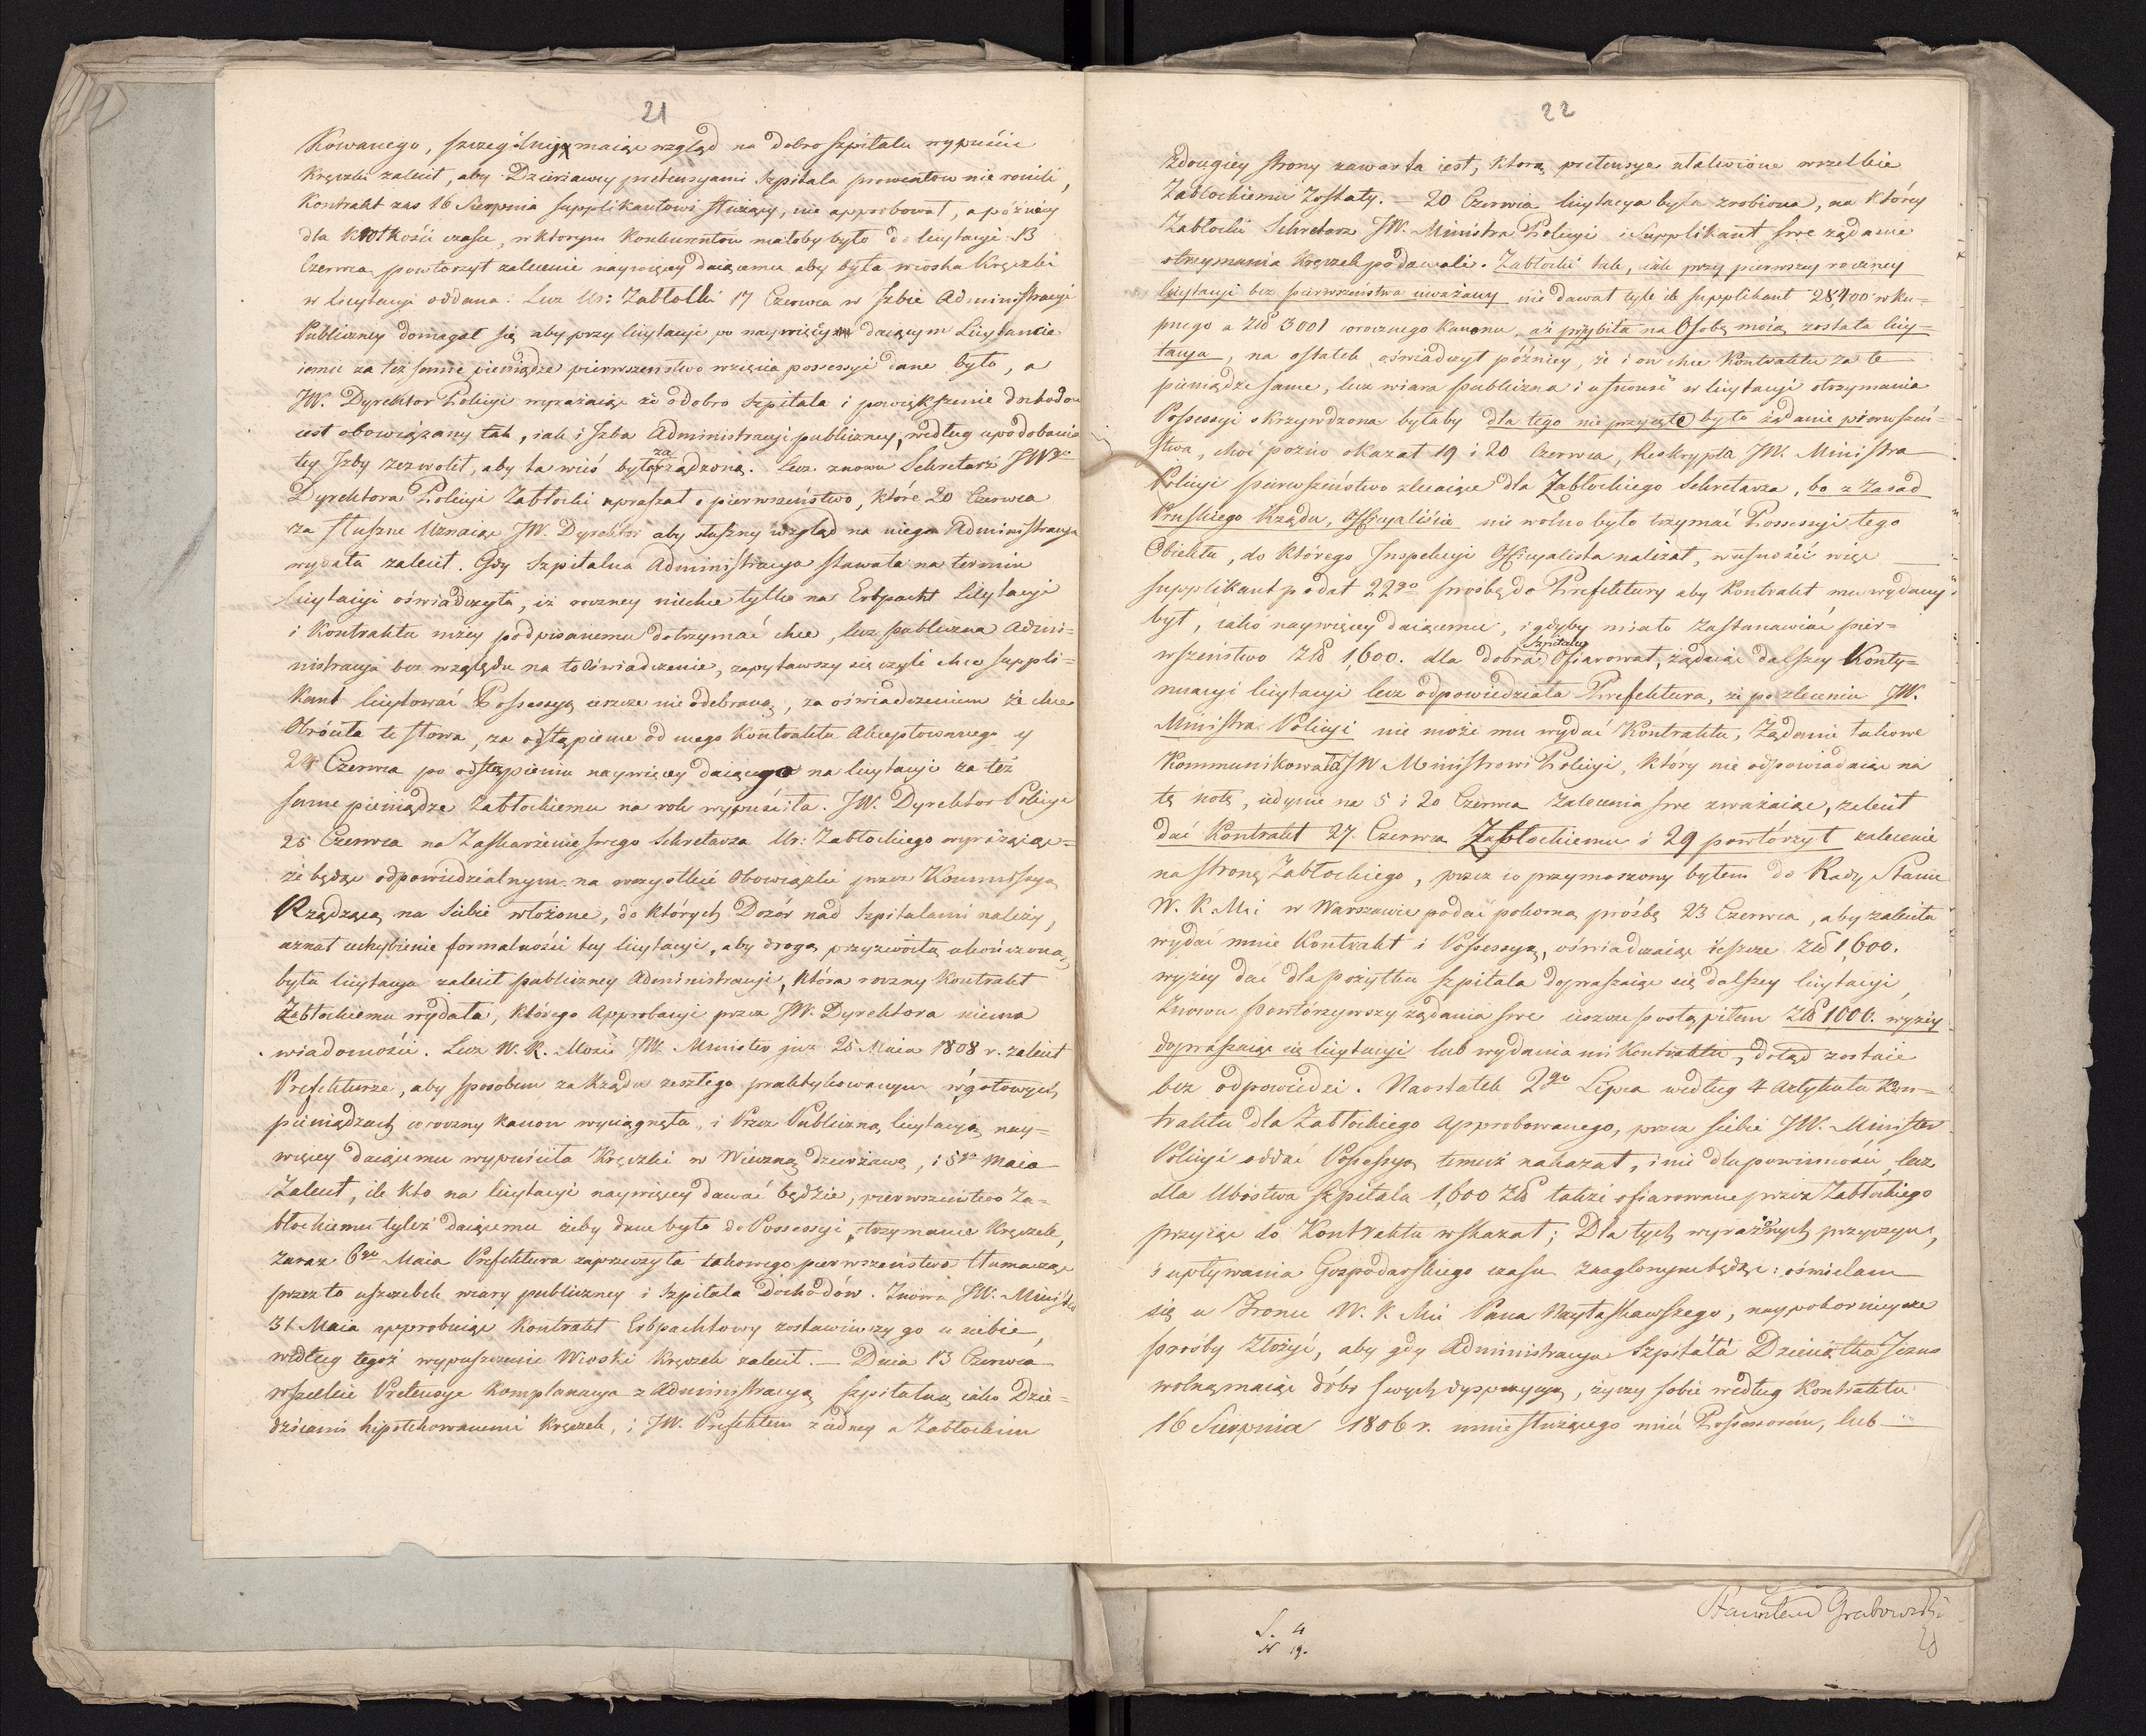 21
Kowanego, szczególniey maiąc wzgląd na dobro Szpitalu wypuścić
Kręczki zalecił, aby Dzierżawcy pretensyami Szpitala prowentow nie ronili,
Kontrakt zas 16 Sierpnia supplikantowi służący, nie approbował, a pózniey
dla krotkości czasu, w ktorym Konkurentow małoby było do licytacyi 13
Czerwca powtorzył zalecenie naywięcey daiącemu aby była wioska Kręczki
w Licytacyi oddana. Lecz Ur: Zabłolki 17 Czerwca w Izbie Administracyi
Publiczney domagał się aby przy licytacyi po naywięcey daiącym Licytancie
iemu za też same pieniądze pierwszenstwo wzięcia possessyi dane było, a
JW. Dyrektor Policyi wyrażaiąc że o dobro Szpitala i powiększenie dochodow
iest obowiązany tak, iak i Izba Administracyi publiczney, według upodobania
tey Izby zezwolił, aby ta wieś była zarządzoną. Lecz znowu Sekretarz JWgo
Dyrektora Policyi Zabłocki upraszał o pierwszeństwo, które 20 Czerwca
za słuszne Uznaiąc JW. Dyrektor aby słuszny wzgląd na niego Administracya
wydała zalecił. Gdy Szpitalna Administracya stawała na termin
licytacyi oświadczyła, iż roczney niechce tylko na Erbpacht Licytacyi
i Kontraktu niżey podpisanemu dotrzymać chce, lecz publiczna Admi-
nistracya bez względu na to Oświadczenie, zapytawszy się czyli chce suppli=
kant licytować Possessyą ieszcze nie odebraną, za oświadczeniem że chce
Obróciła te słowa, za odstąpienie od mego Kontraktu Akceptowanego y
24 Czerwca po odstąpieniu naywięcey daiącego na licytacyi za też
same pieniądze Zabłockiemu na rok wypuściła. JW. Dyrektor Policyi
25 Czerwca na Zaskarżenie swego Sekretarza Ur: Zabłockiego wyrażaiąc=
że będąc odpowiedzialnym na wszystkie Obowiązki przez Kommissyą
Rządzącą na siebie włożone, do których Dozór nad Szpitalami należy,
uznał uchybienie formalności tey licytacyi, aby drogą przyzwoitą ukończona
była licytacya zalecił publiczney Administracyi, która roczny Kontrakt
Zabłockiemu wydała, którego Approbacyi przez JW. Dyrektora niema
wiadomości. Lecz W. K. Mości JW. Minister już 25 Maia 1808 r. zalecił
Prefekturze, aby sposobem za Rządu zeszłego praktykowanym w gotowych
pieniądzach coroczny kanon wyciągnęła, i Przez Publiczną licytacyą nay-
więcey daiącemu wypuściła Kręczki w Wieczną dzierżawę, i 5go Maia
Zalecił, ile kto na licytacyi naywięcey dawać będzie, pierwszeństwo Za-
błockiemu tyleż daiącemu żeby dane było do Possessyi otrzymanie Kręczek,
Zaraz 6go Maia Prefektura zaprzeczyła takowego pierwszeństwa tłumacząc
przez to uszczerbek wiary publiczney i Szpitala Dochodów. Znowu JW. Minister
31 Maia approbuiąc Kontrakt Erbpachtowy zostawiwszy go u siebie,
według tegoż wypuszczenie Wioski Kręczek zalecił. — Dnia 13 Czerwca
wszelkie Pretensye Komplanacya z Administracyą szpitalną iako Dzie=
dzicami hipotekowanemi Kręczek, i JW. Prefektem z iedney a Zabłockim
22
z drugiey strony zawarta iest, ktorą pretensye ułatwione wszelkie
Zabłockiemu Zostały. — 20 Czerwca licytacya była zrobiona, na którey
Zabłocki Sekretarz JW. Ministra Policyi i Supplikant swe żądanie
otrzymania Kręczek podawali. Zabłocki tak, iak przy pierwszey roczney
licytacyi bez pierwszeństwa uważany nie dawał tyle ile supplikant 28,400 wku=
pnego a Złł 3001 corocznego Kanonu, aż przybita na Osobę moią została licy=
tacya, na ostatek oświadczył pózniey, że i on chce Kontraktu za te
pieniądze same, lecz wiara publiczna i ufność w licytacyi otrzymania
Possessyi skrzywdzona byłaby dla tego nie przyięte było żądanie pierwszeń-
stwa, choć pozno okazał 19 i 20 Czerwca, Reskrypta JW. Ministra
Policyi pierwszeństwo zlecaiące dla Zabłockiego Sekretarza, bo z Zasad
Pruskiego Rządu, Officyaliście nie wolno było trzymać Possessyi tego
Obiektu, do którego Inspekcyi Officyalista należał, w ufności więc
supplikant podał 22go prosbę do Prefektury aby Kontrakt mu wydany
był, iako naywięcey daiącemu, i gdyby miało Zastanawiać pier-
wszeństwo Złł 1,600. dla dobra Szpitala Ofiarował, żądaiąc dalszey Konty=
nuacyi licytacyi lecz odpowiedziała Prefektura, że po zleceniu JW.
Ministra Policyi nie może mu wydać Kontraktu, Żądanie takowe
Kommunikowała JW Ministrowi Policyi, który nie odpowiadaiąc na
tę notę, iedynie na 5 i 20 Czerwca Zalecenia swe zważaiąc, zalecił
dać Kontrakt 27. Czerwca Zabłockiemu i 29 powtórzył zalecenie
na stronę Zabłockiego, przez co przymuszony byłem do Rady Stanu
W. K Mci w Warszawie podać pokorną prośbę 23 Czerwca, aby zaleciła
wydać mnie Kontrakt i Possessyą, oświadczaiąc ieszcze Złł 1,600.
wyżey dać dla pożytku szpitala dopraszaiąc się dalszey licytacyi,
Znowu powtórzywszy żądania swe ieszcze postąpiłem Złł 1000. wyżey
dopraszaiąc się licytacyi lub wydania mi Kontraktu, dotąd zostaie
bez odpowiedzi. Naostatek 2go Lipca według 4 Artykułu Kon=
traktu dla Zabłockiego Approbowanego, przez siebie JW. Minister
Policyi oddać Possessyą temuż nakazał, i nie dla powinności, lecz
dla Ubóstwa Szpitala 1,600 Złł także ofiarowane przez Zabłockiego
przyiąć do Kontraktu wskazał; Dla tych wyrażonych przyczyn,
i upływania Gospodarskiego czasu znaglonym będąc: ośmielam
się u Tronu W. K. Mci Pana Nayłaskawszego, naypokornieysze
prośby Złożyć, aby gdy Administracya Szpitala Dzieciątka Jezus
wolną maiąc dóbr swych dyspozycyą, życzy sobie według Kontraktu
16 Sierpnia 1806 r. mnie służącego mieć Possessorem, lub —
Stanisław Grabowski
S. 4
N 19.